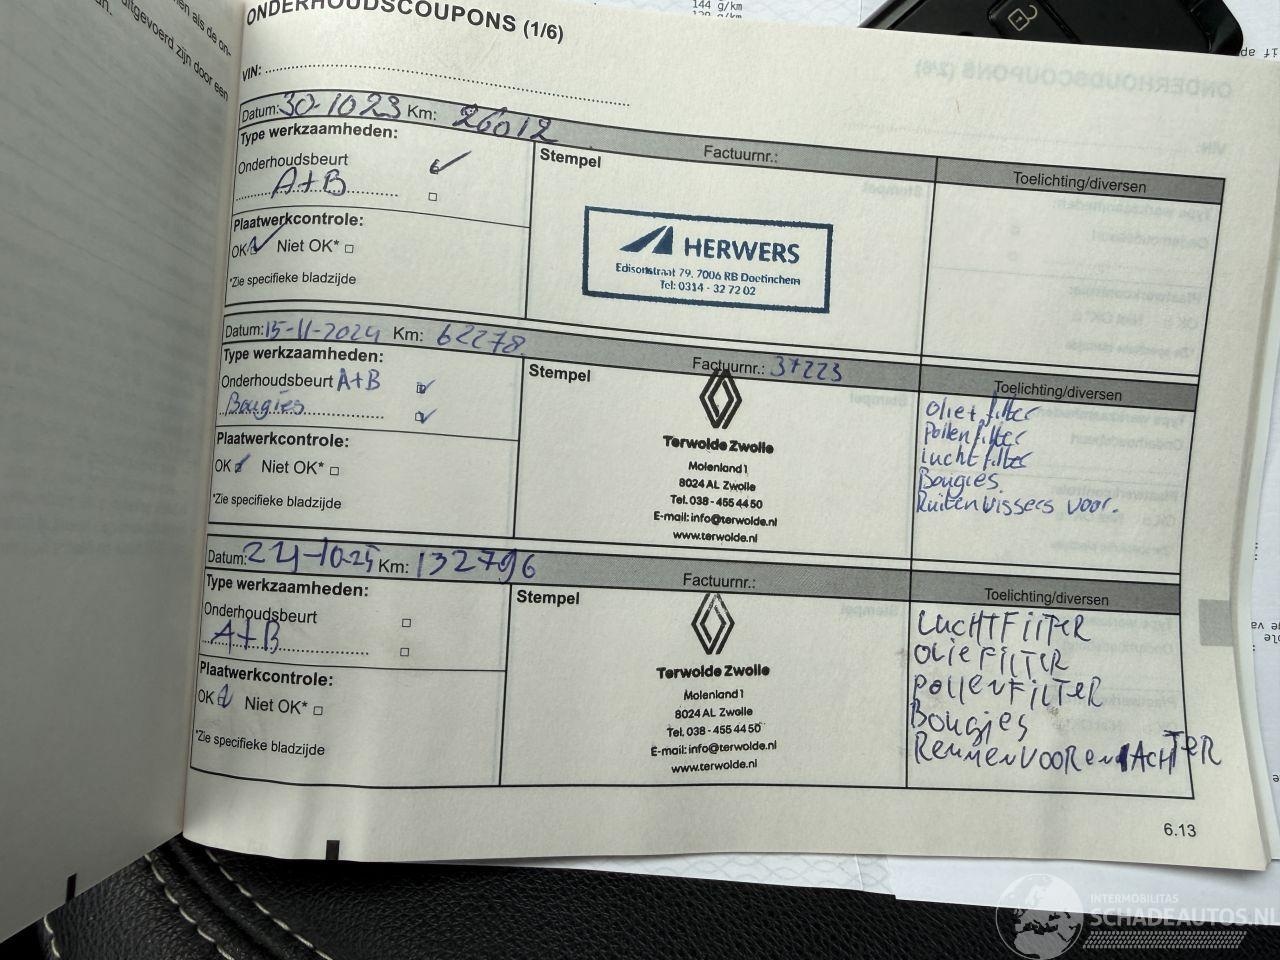 144 g/km
ONDERHOUDSCOUPONS (1/6)
VIN:
Datum: 30-10 23 Km: 26012
Factuurnr.:
Type werkzaamheden:
Onderhoudsbeurt
A+B
Plaatwerkcontrole:
OK Niet OK*
*Zie specifieke bladzijde
Stempel
HERWERS
Edisonstraat 79, 7006 RB Doetinchem
Tel: 0314 - 32 72 02
Toelichting/diversen
Datum: 15-11-2024 Km: 62278
Factuurnr.: 37223
Type werkzaamheden:
Onderhoudsbeurt A+B
Bougies
Plaatwerkcontrole:
OK Niet OK*
*Zie specifieke bladzijde
Stempel
Terwolde Zwolle
Molenland 1
8024 AL Zwolle
Tel. 038 - 455 44 50
E-mail: info@terwolde.nl
www.terwolde.nl
Toelichting/diversen
olie + filter
Pollenfilter
Luchtfilter
Bougies
Ruitenwissers voor.
Datum: 24-10-25 Km: 132796
Factuurnr.:
Type werkzaamheden:
Onderhoudsbeurt
A+B
Plaatwerkcontrole:
OK Niet OK*
*Zie specifieke bladzijde
Stempel
Terwolde Zwolle
Molenland 1
8024 AL Zwolle
Tel. 038 - 455 44 50
E-mail: info@terwolde.nl
www.terwolde.nl
Toelichting/diversen
LUCHTFILTER
OLIEFILTER
POLLENFILTER
Bougies
REMMEN VOOR EN ACHTER
6.13
INTERMOBILITAS
SCHADEAUTOS.NL